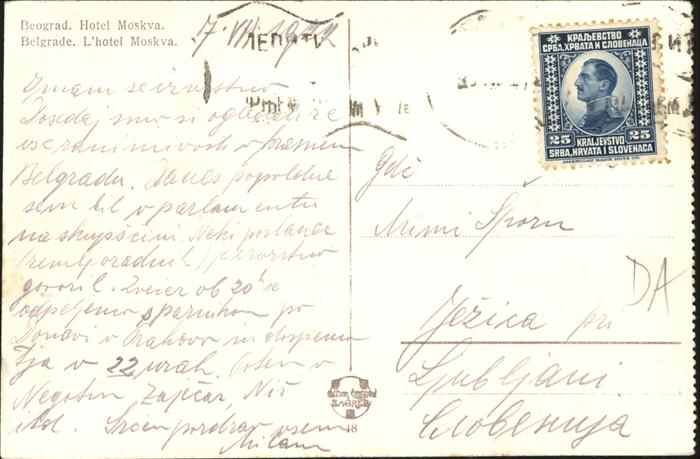 Beograd. Hotel Moskva.
Belgrade. L'hotel Moskva.
7. VII 1922
КРАЉЕВСТВО
СРБА, ХРВАТА И СЛОВЕНАЦА
25 KRALJEVSTVO 25
SRBA, HRVATA I SLOVENACA
AMERICAN BANK NOTE CO.
Imam se izvrstno
Dosedaj smo si ogledali že
vse zanimivosti v
Belgradu. Danes popoldne
sem bil v parlamentu
na skupščini. Neki poslanec
(zemljoradnik)
govoril. Zvečer ob 20h se
odpeljemo s parnikom po
Donavi v Prahovo in dospemo
tja v 22 urah. Potem v
Negotin, Zaječar, Niš
itd. Srčen pozdrav vsem
Milan
Gdč
Mimi Šporn
Ježica pri
Ljubljani
Словенија
DA
ZAGREB
18